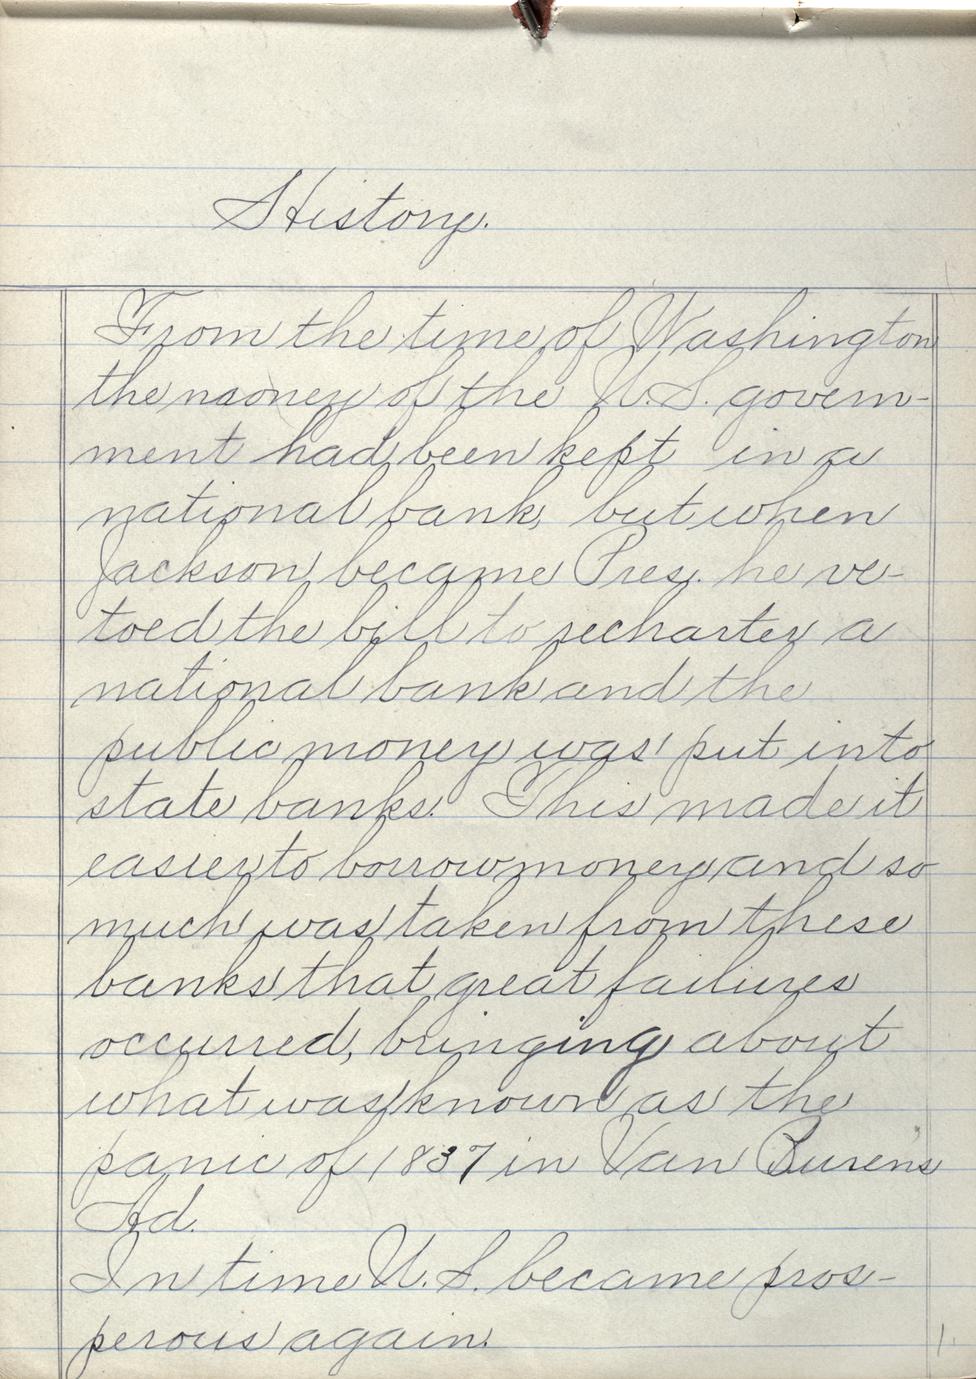 History.
From the time of Washington
the money of the U.S. govern-
ment had been kept in a
national bank, but when
Jackson became Pres. he ve-
toed the bill to recharter a
national bank and the
public money was put into
state banks. This made it
easier to borrow money and so
much was taken from these
banks that great failures
occurred, bringing about
what was known as the
panic of 1837 in Van Burens
Ad.
In time U.S. became pros-
perous again.